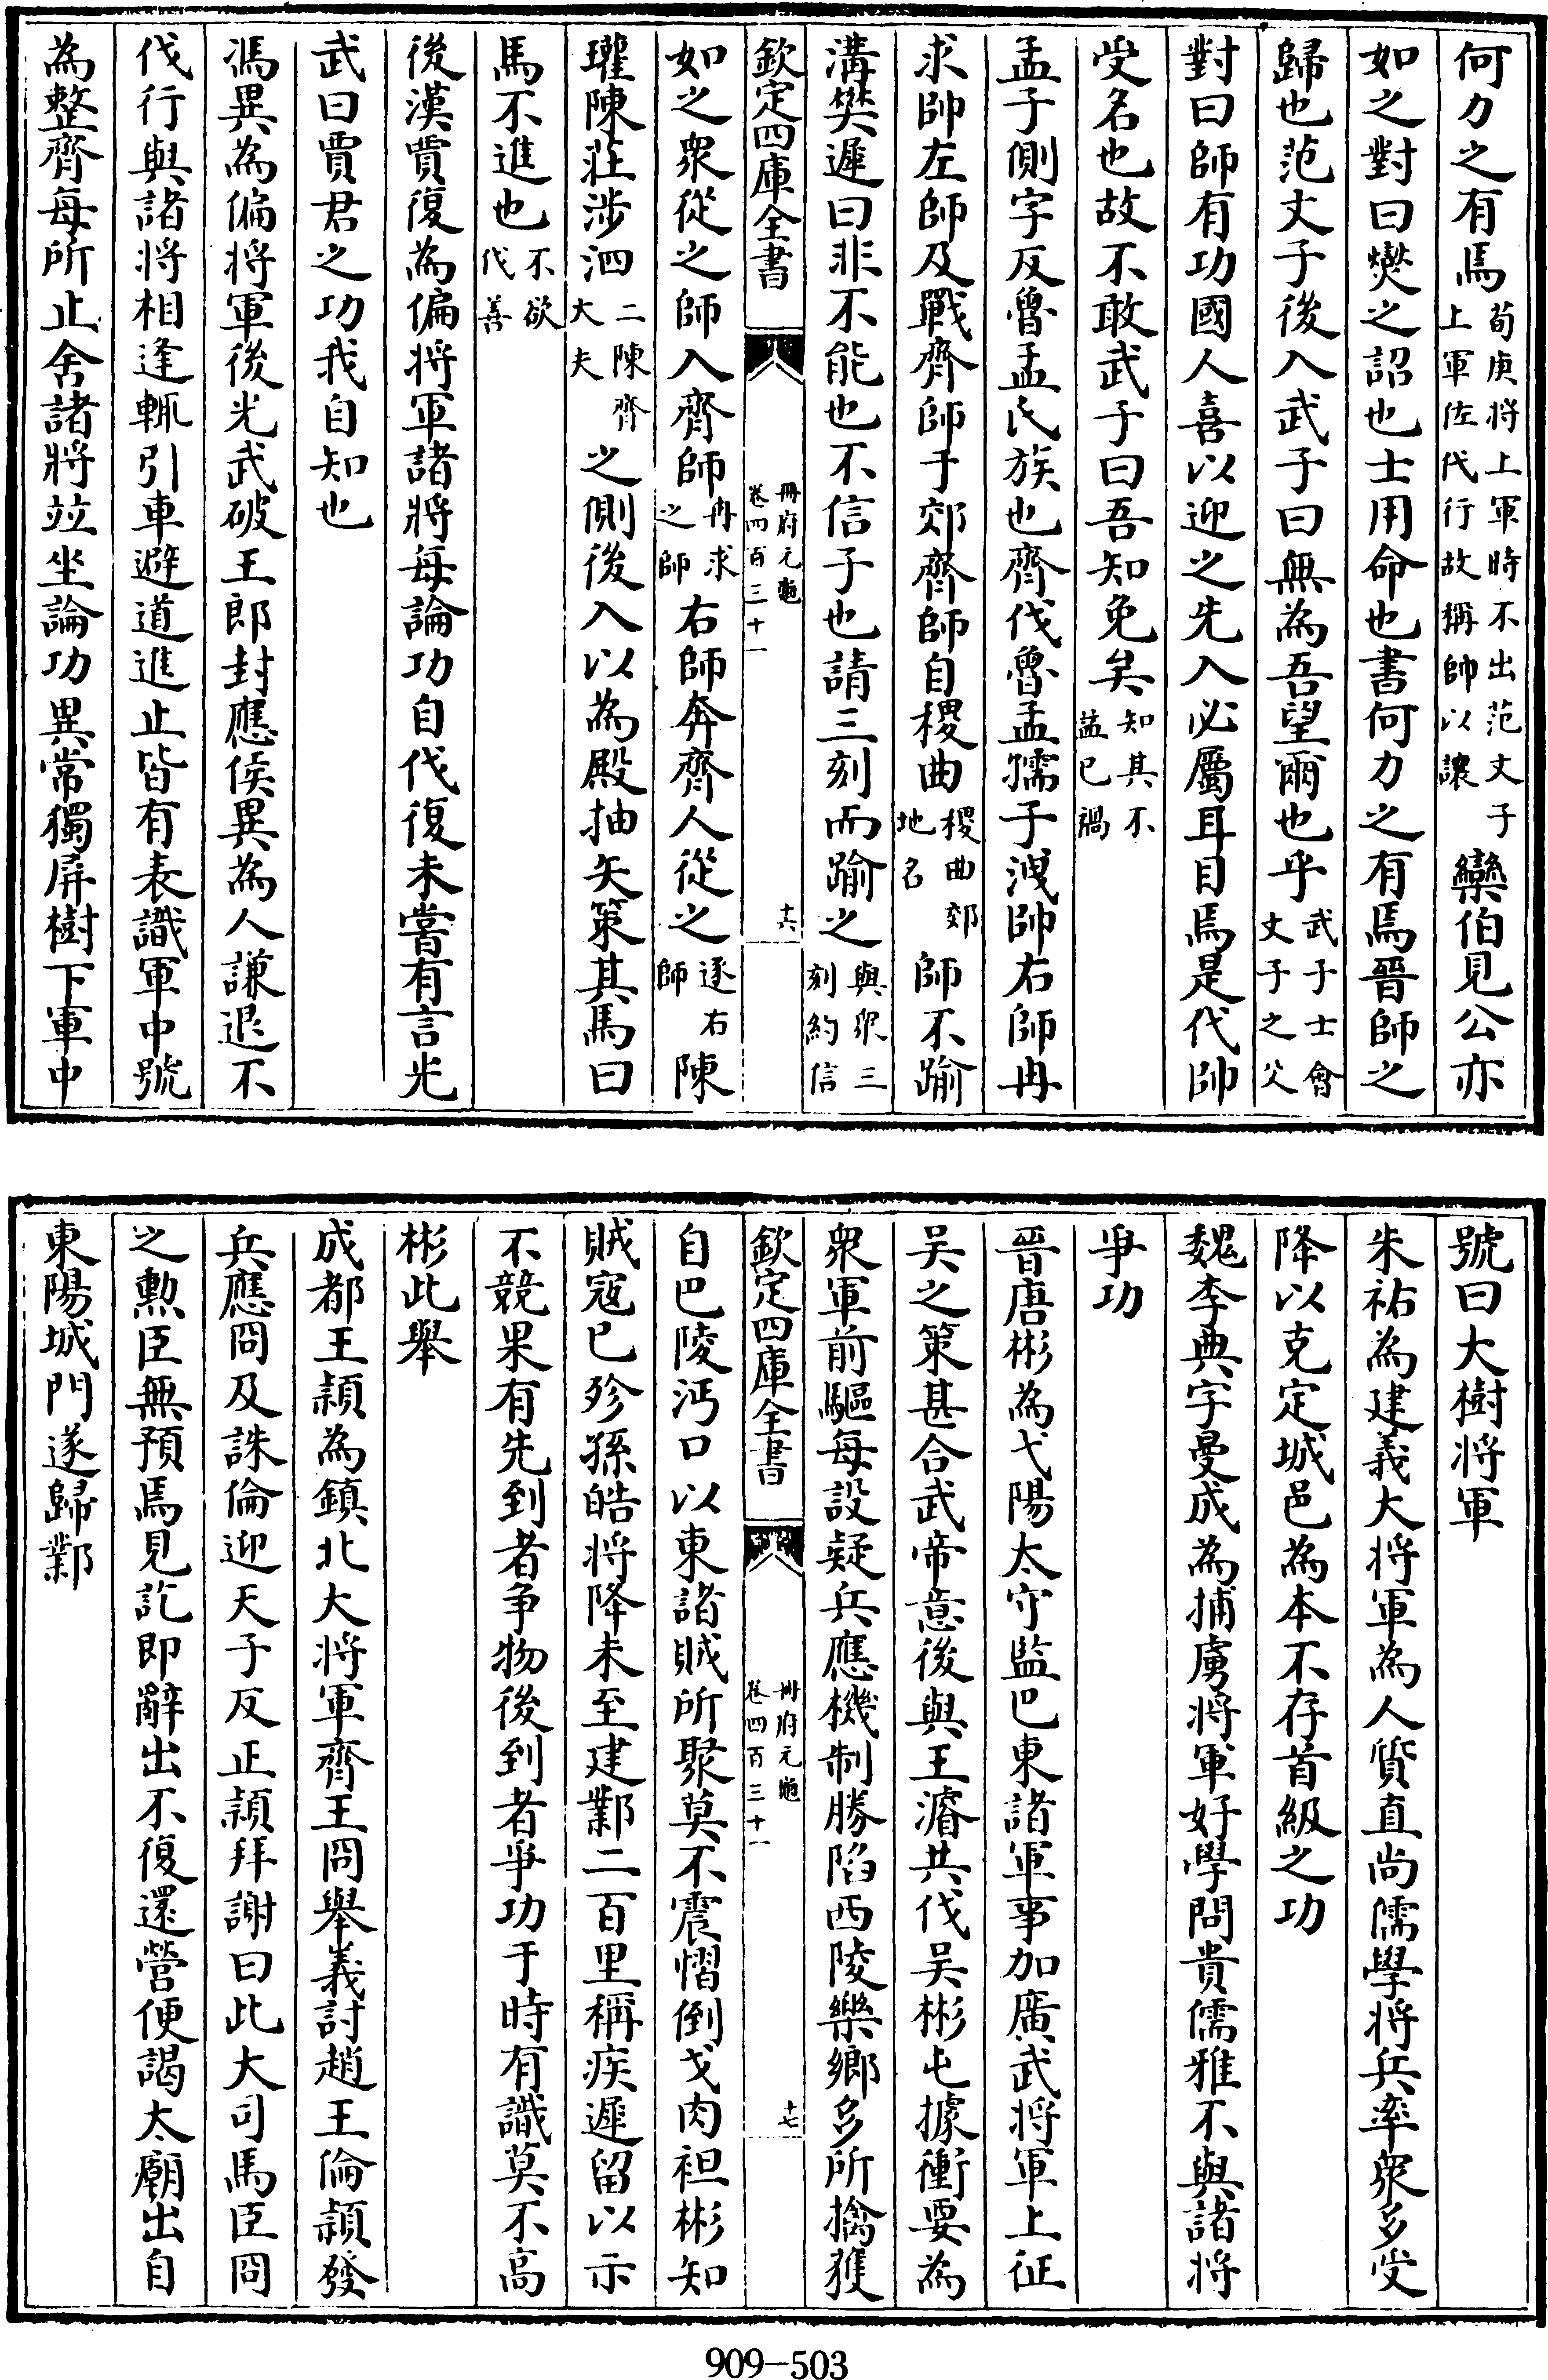 何力之有焉荀庚將上軍時不出范文子上軍佐代行故稱帥以讓欒伯見公亦
如之對曰燮之詔也士用命也書何力之有焉晉師之
歸也范文子後入武子曰無為吾望爾也乎武子士會文子之父
對曰師有功國人喜以迎之先入必屬耳目焉是代帥
受名也故不敢武子曰吾知免矣知其不益己禍
孟子側字反魯孟氏族也齊伐魯孟孺子洩帥右師冉
求帥左師及戰齊師于郊齊師自稷曲稷曲郊地名師不踰
溝樊遲曰非不能也不信子也請三刻而踰之與眾三刻約信
欽定四庫全書
冊府元龜
卷四百三十一
十六
如之眾從之師入齊師冉求之師右師奔齊人從之逐右師陳
瓘陳莊涉泗二陳齊大夫之側後入以為殿抽矢策其馬曰
馬不進也不欲伐善
後漢賈復為偏將軍諸將每論功自伐復未嘗有言光
武曰賈君之功我自知也
馮異為偏將軍後光武破王郎封應侯異為人謙退不
伐行與諸將相逢輒引車避道進止皆有表識軍中號
為整齊每所止舍諸將竝坐論功異常獨屏樹下軍中
號曰大樹將軍
朱祐為建義大將軍為人質直尚儒學將兵率眾多受
降以克定城邑為本不存首級之功
魏李典字曼成為捕虜將軍好學問貴儒雅不與諸將
爭功
晉唐彬為弋陽太守監巴東諸軍事加廣武將軍上征
吳之策甚合武帝意後與王濬共伐吳彬屯據衝要為
眾軍前驅每設疑兵應機制勝陷西陵樂鄉多所擒獲
欽定四庫全書
冊府元龜
卷四百三十一
十七
自巴陵沔口以東諸賊所聚莫不震慴倒戈肉袒彬知
賊寇已殄孫皓將降未至建鄴二百里稱疾遲留以示
不競果有先到者爭物後到者爭功于時有識莫不高
彬此舉
成都王頴為鎮北大將軍齊王冏舉義討趙王倫頴發
兵應冏及誅倫迎天子反正頴拜謝曰此大司馬臣冏
之勲臣無預焉見訖即辭出不復還營便謁太廟出自
東陽城門遂歸鄴
909-503